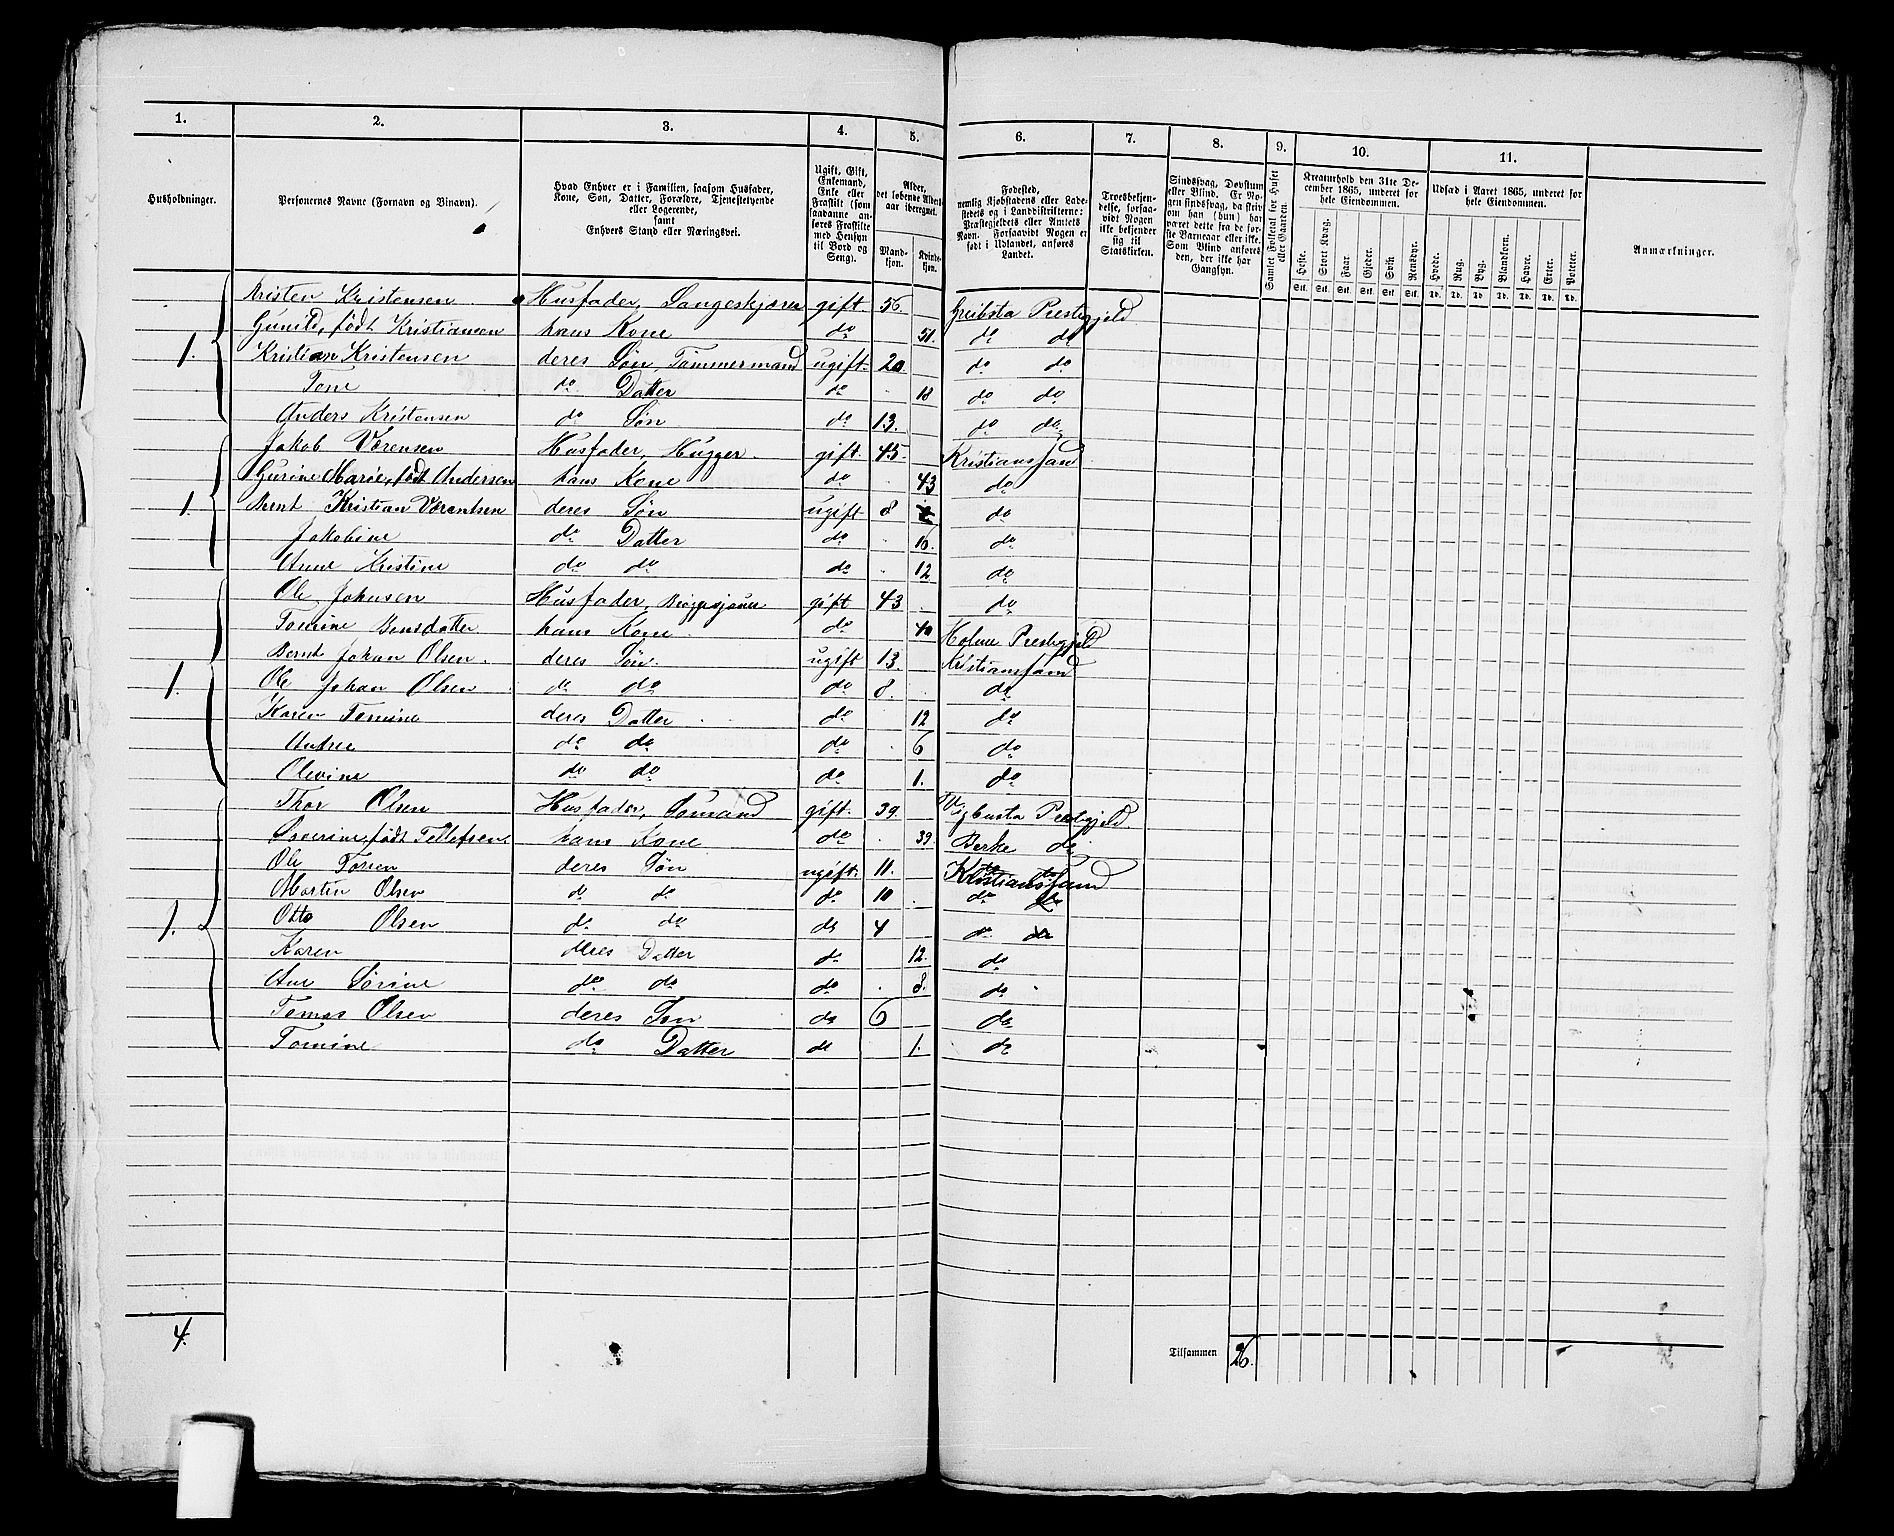 1. 2. 3. 4. 5. 6. 7. 8. 9. 10. 11.
Husholdninger.
Personernes Navne (Fornavn og Binavn).
Hvad Enhver er i Familien, saasom Husfader, Kone, Søn, Datter, Forældre, Tjenestetyende eller Logerende, samt Enhvers Stand eller Næringsvei.
Ugift, Gift, Enkemand, Enke eller Fraskilt (som saadanne anføres Fraskilte med Hensyn til Bord og Seng).
Alder, det løbende Aldersaar iberegnet.
Mandkjøn. Kvindekjøn.
Fødested, nemlig Kjøbstadens eller Ladestedets og i Landdistrikterne: Præstegjeldets eller Amtets Navn. Forsaavidt Nogen er født i Udlandet, anføres Landet.
Troesbekjendelse, forsaavidt Nogen ikke bekjender sig til Statskirken.
Sindssvag, Døvstum eller Blind. Er Nogen sindssvag, da skrives om han (hun) har været dette fra de første Barneaar eller ikke. Som Blind anføres den, der ikke har Gangsyn.
Samlet Folketal for Huset eller Gaarden.
Kreaturhold den 31te December 1865, underet for hele Eiendommen.
Heste. Stort Kvæg. Faar. Gjeder. Sviin. Rensdyr.
Stk. Stk. Stk. Stk. Stk. Stk.
Udsæd i Aaret 1865, underet for hele Eiendommen.
Hvede. Rug. Byg. Blandkorn. Havre. Erter. Poteter.
Td. Td. Td. Td. Td. Td. Td.
Anmærkninger.
Kristen Kristensen Husfader, gift. 56. Prestegjeld
Gunild, født Kristiansen hans Kone do 51. do do
1. Kristian Kristensen deres Søn, Tømmermand ugift. 20 do do
Tone do Datter do 18 do do
Anders Kristensen do Søn do 13. do do
Jakob Værensen Husfader, Hugger. gift. 45. Kristianssand
Gurine Marie, født Andersen hans Kone do 43 do
1. Kristian Værentsen deres Søn ugift 8 do
Jakobine do Datter do 16. do
Anne Kristine do do do 12 do
Ole Johnsen Husfader, gift 43 do
Tomine hans Kone do 40 Holme Prestegjeld
Bernt Johan Olsen. deres Søn. ugift 13. Kristianssand
1. Ole Johan Olsen do do do 8. do
Karen Tomine deres Datter do 12 do
Andrea do do do 6 do
Olevine do do do 1. do
Thor Olsen Husfader, Sømand gift. 39. Prestegjeld
Severine, født Tellefsen. hans Kone do 39. do
Ole deres Søn ugift. 11. Kristianssand
Martin Olsen do do do 10 do
1. Otto Olsen do do do 4 do do
Karen deres Datter do 12. do
Ane Sørine do do do 8. do
Tomas Olsen deres Søn do 6 do
Tomine do Datter do 1. do
4.
Tilsammen 26.